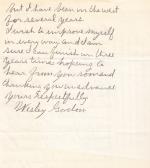 but I have been in the west
for several years
I wish to improve myself
in every way and I am
sure I can finish in three
years time hoping to
hear from you soon and
thanking you in advance
Yours respectfully
Wesley Gordon